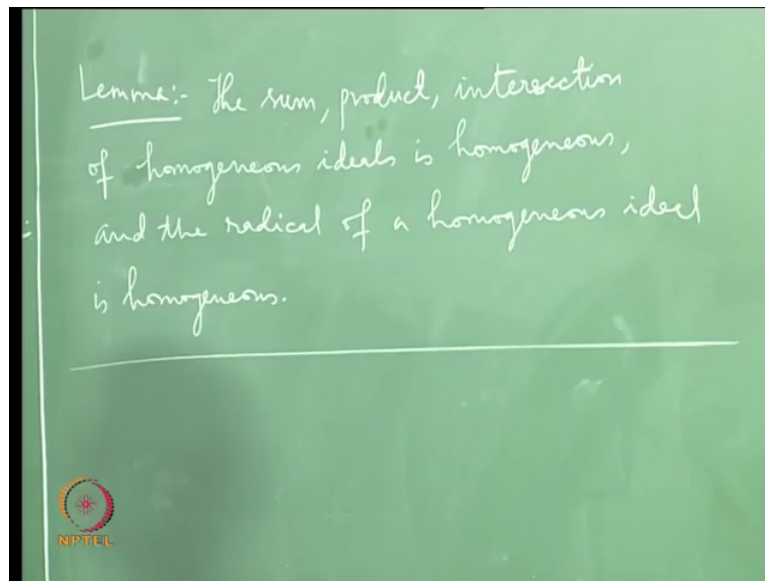 Lemma:- The sum, product, intersection
of homogeneous ideals is homogeneous,
and the radical of a homogeneous ideal
is homogeneous.
NPTEL